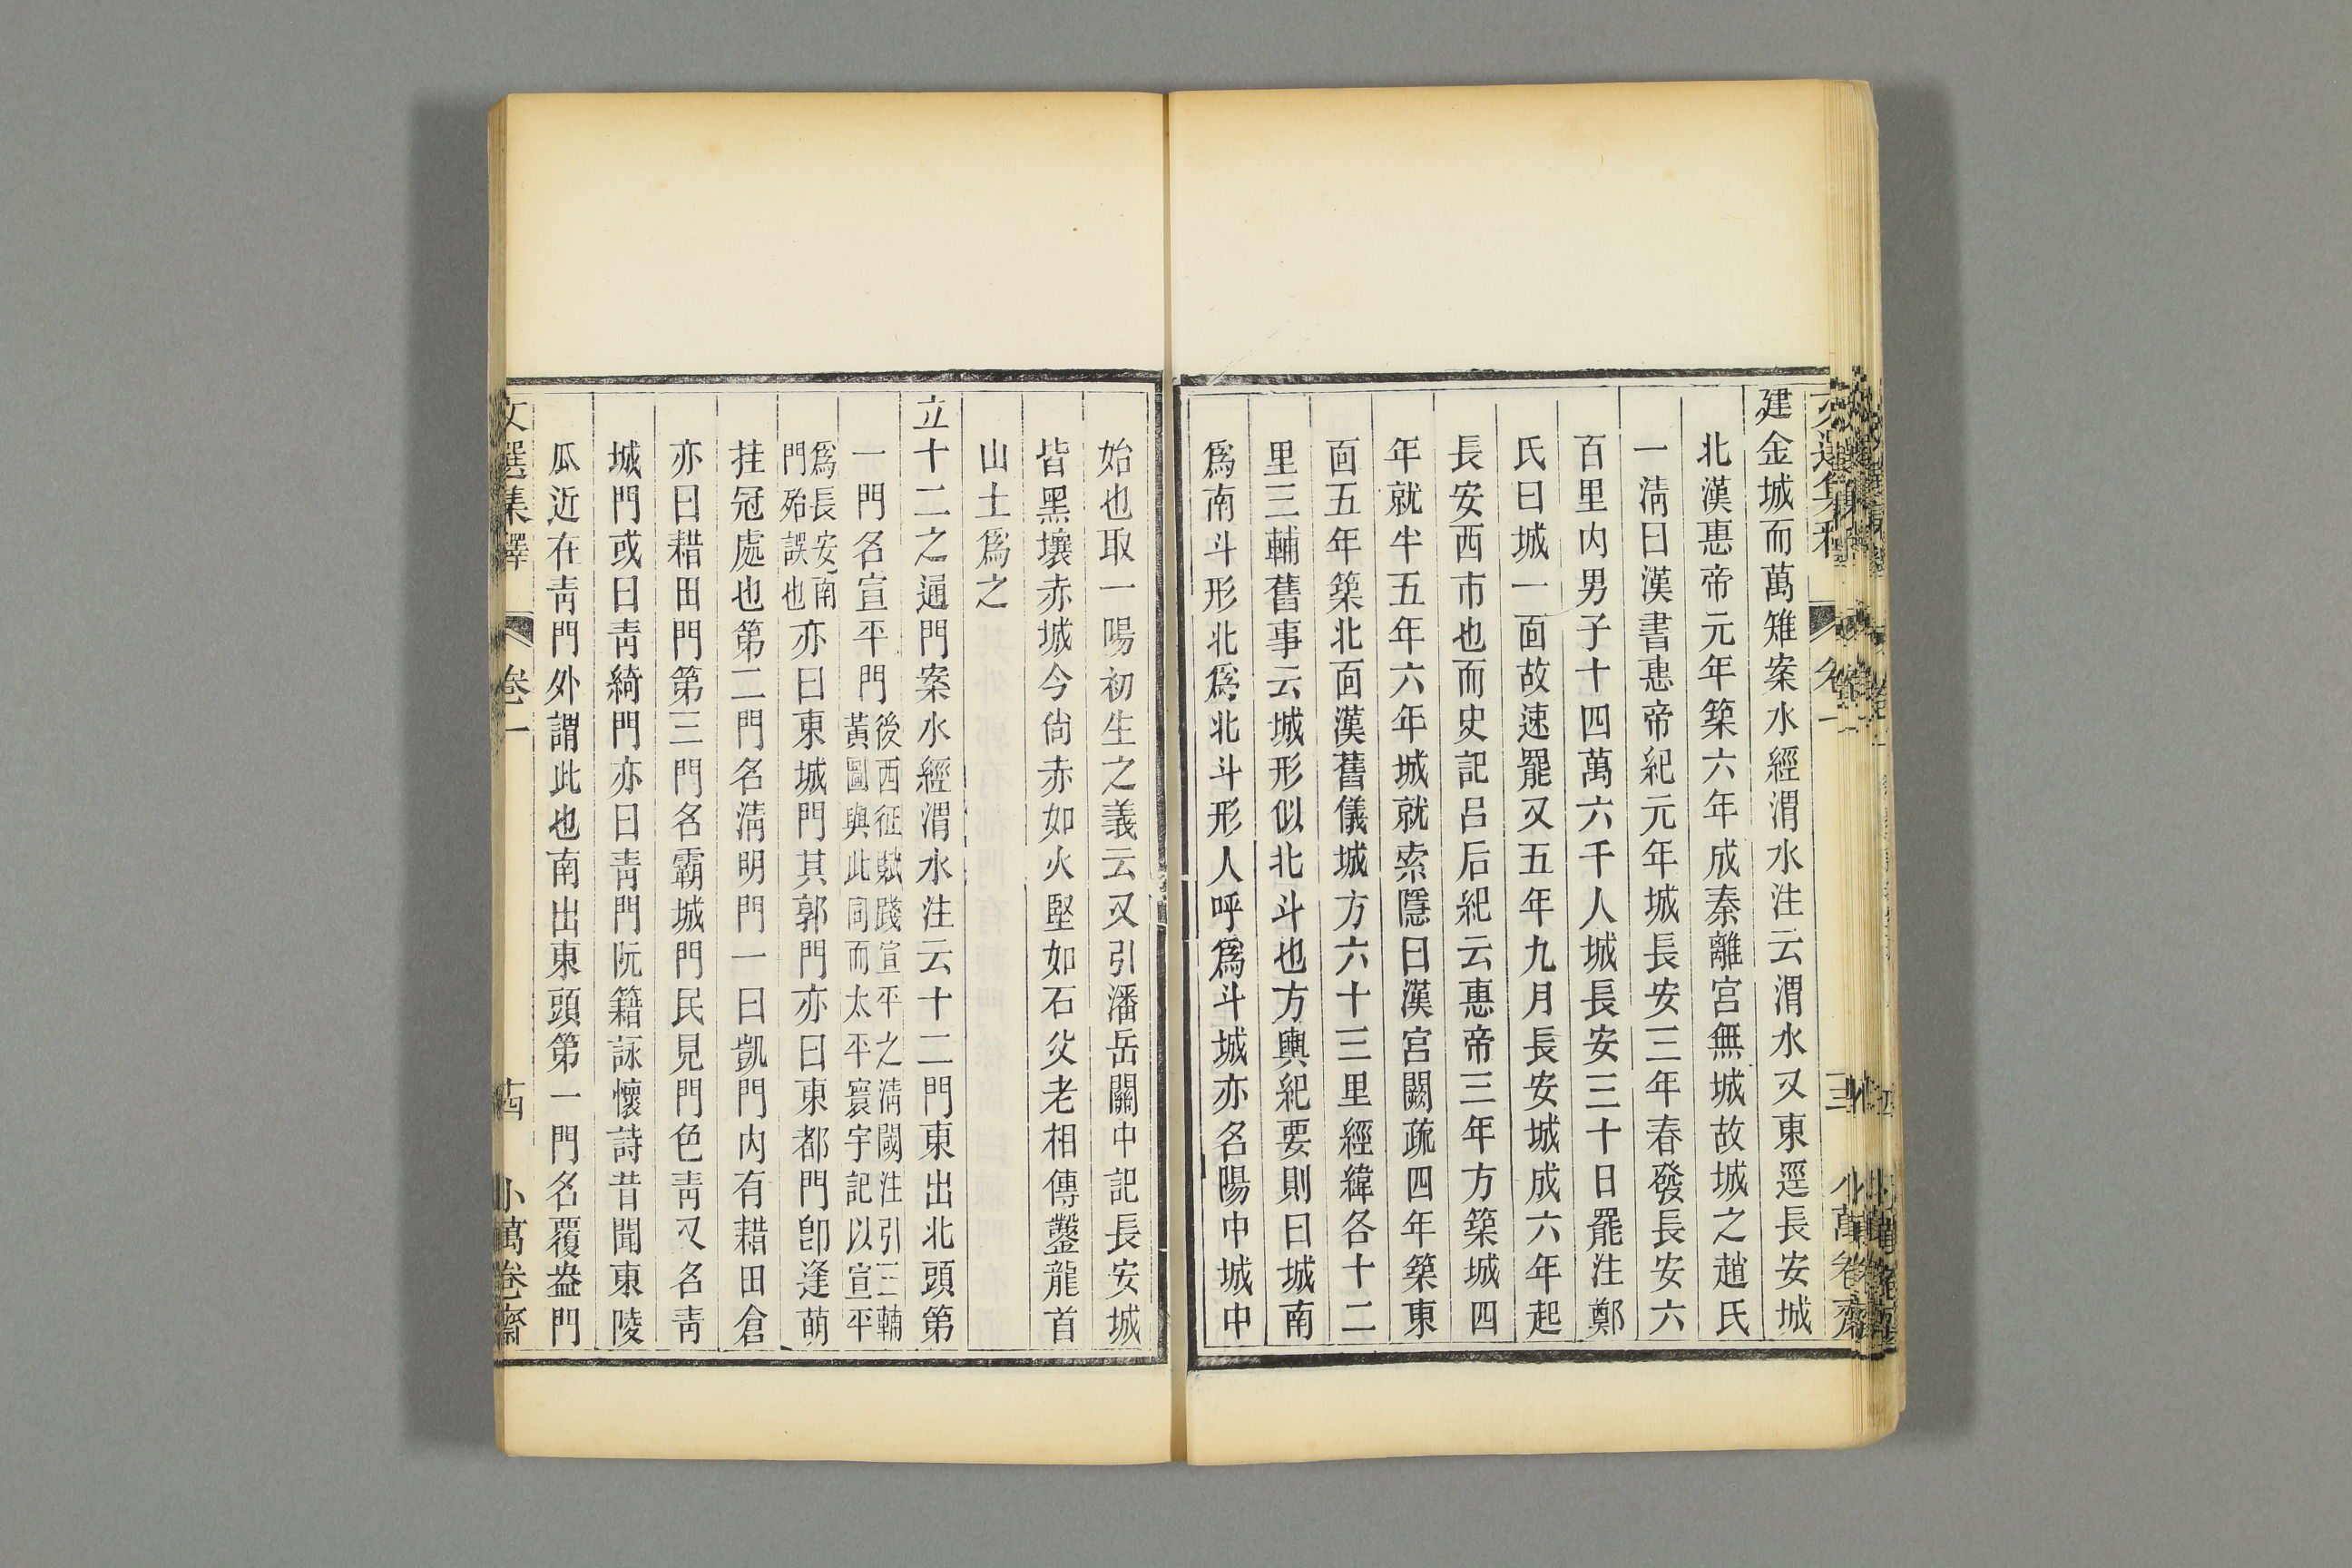 建金城而萬雉案水經渭水注云渭水又東逕長安城
北漢惠帝元年築六年成秦離宮無城故城之趙氏
一淸曰漢書惠帝紀元年城長安三年春發長安六
百里內男子十四萬六千人城長安三十日罷注鄭
氏曰城一面故速罷又五年九月長安城成六年起
長安西市也而史記呂后紀云惠帝三年方築城四
年就半五年六年城就索隱曰漢宮闕疏四年築東
面五年築北面漢舊儀城方六十三里經緯各十二
里三輔舊事云城形似北斗也方輿紀要則曰城南
爲南斗形北爲北斗形人呼爲斗城亦名陽中城中
始也取一陽初生之義云又引潘岳關中記長安城
皆黑壤赤城今尙赤如火堅如石父老相傳鑿龍首
山土爲之
立十二之通門案水經渭水注云十二門東出北頭第
一門名宣平門後西征賦踐宣平之淸閾注引三輔
黃圖與此同而太平寰宇記以宣平
爲長安南
門殆誤也亦曰東城門其郭門亦曰東都門卽逢萌
挂冠處也第二門名淸明門一曰凱門內有耤田倉
亦曰耤田門第三門名霸城門民見門色靑又名靑
城門或曰靑綺門亦曰靑門阮籍詠懷詩昔聞東陵
瓜近在靑門外謂此也南出東頭第一門名覆盎門
文選集釋 卷一 十四 小萬卷齋